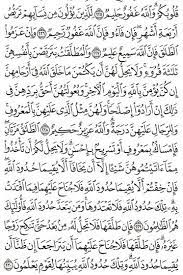 قُلُوبُكُمْ وَاللَّهُ غَفُورٌ حَلِيمٌ ۝ لِّلَّذِينَ يُؤْلُونَ مِن نِّسَائِهِمْ تَرَبُّصُ
أَرْبَعَةِ أَشْهُرٍ فَإِن فَاءُو فَإِنَّ اللَّهَ غَفُورٌ رَّحِيمٌ ۝ وَإِنْ عَزَمُوا
الطَّلَاقَ فَإِنَّ اللَّهَ سَمِيعٌ عَلِيمٌ ۝ وَالْمُطَلَّقَاتُ يَتَرَبَّصْنَ بِأَنفُسِهِنَّ
ثَلَاثَةَ قُرُوءٍ وَلَا يَحِلُّ لَهُنَّ أَن يَكْتُمْنَ مَا خَلَقَ اللَّهُ فِي أَرْحَامِهِنَّ
إِن كُنَّ يُؤْمِنَّ بِاللَّهِ وَالْيَوْمِ الْآخِرِ وَبُعُولَتُهُنَّ أَحَقُّ بِرَدِّهِنَّ فِي
ذَٰلِكَ إِنْ أَرَادُوا إِصْلَاحًا وَلَهُنَّ مِثْلُ الَّذِي عَلَيْهِنَّ بِالْمَعْرُوفِ
وَلِلرِّجَالِ عَلَيْهِنَّ دَرَجَةٌ وَاللَّهُ عَزِيزٌ حَكِيمٌ ۝ الطَّلَاقُ مَرَّتَانِ
فَإِمْسَاكٌ بِمَعْرُوفٍ أَوْ تَسْرِيحٌ بِإِحْسَانٍ وَلَا يَحِلُّ لَكُمْ أَن تَأْخُذُوا
مِمَّا آتَيْتُمُوهُنَّ شَيْئًا إِلَّا أَن يَخَافَا أَلَّا يُقِيمَا حُدُودَ اللَّهِ
فَإِنْ خِفْتُمْ أَلَّا يُقِيمَا حُدُودَ اللَّهِ فَلَا جُنَاحَ عَلَيْهِمَا فِيمَا افْتَدَتْ بِهِ
تِلْكَ حُدُودُ اللَّهِ فَلَا تَعْتَدُوهَا وَمَن يَتَعَدَّ حُدُودَ اللَّهِ فَأُولَٰئِكَ
هُمُ الظَّالِمُونَ ۝ فَإِن طَلَّقَهَا فَلَا تَحِلُّ لَهُ مِن بَعْدُ حَتَّىٰ تَنكِحَ زَوْجًا
غَيْرَهُ فَإِن طَلَّقَهَا فَلَا جُنَاحَ عَلَيْهِمَا أَن يَتَرَاجَعَا إِن ظَنَّا
أَن يُقِيمَا حُدُودَ اللَّهِ وَتِلْكَ حُدُودُ اللَّهِ يُبَيِّنُهَا لِقَوْمٍ يَعْلَمُونَ ۝